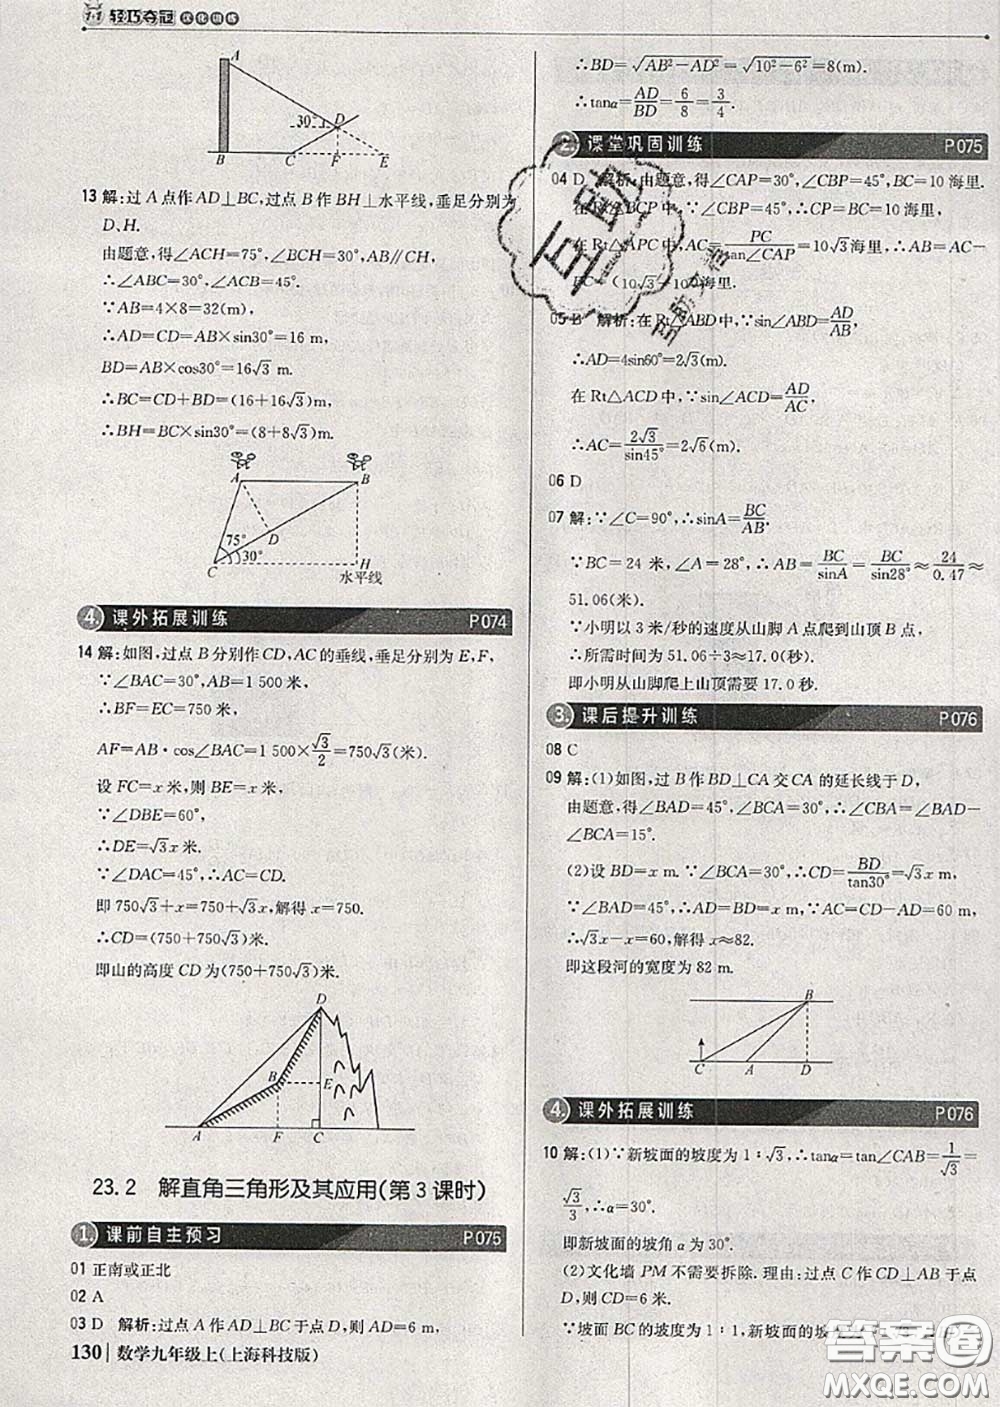 1+1 轻巧夺冠 优化训练
A
30° D
B C F E
13 解:过 A 点作 AD⊥BC,过点 B 作 BH⊥水平线,垂足分别为
D、H.
由题意,得∠ACH=75°,∠BCH=30°,AB∥CH,
∴∠ABC=30°,∠ACB=45°.
∵AB=4×8=32(m),
∴AD=CD=AB×sin30°=16 m,
BD=AB×cos30°=16√3 m.
∴BC=CD+BD=(16+16√3)m.
∴BH=BC×sin30°=(8+8√3)m.
A B
D
75°
30°
C H
水平线
4. 课外拓展训练 P074
14 解:如图,过点 B 分别作 CD,AC 的垂线,垂足分别为 E,F,
∵∠BAC=30°,AB=1 500 米,
∴BF=EC=750 米,
AF=AB·cos∠BAC=1 500×√3/2=750√3(米).
设 FC=x 米,则 BE=x 米.
∵∠DBE=60°,
∴DE=√3x 米.
∵∠DAC=45°,∴DC=AC.
即 750√3+x=750+√3x,解得 x=750.
∴CD=(750+750√3)米.
即山的高度 CD 为(750+750√3)米.
D
B E
A F C
23.2 解直角三角形及其应用(第 3 课时)
1. 课前自主预习 P075
01 正南或正北
02 A
03 D 解析:过点 A 作 AD⊥BC 于点 D,则 AD=6 m,
130 数学九年级上(上海科技版)
∴BD=√(AB²−AD²)=√(10²−6²)=8(m).
∴tanα=AD/BD=6/8=3/4.
2. 课堂巩固训练 P075
04 D 解析:由题意,得∠CAP=30°,∠CBP=45°,BC=10 海里.
在 Rt△BPC 中,∵∠CBP=45°,∴CP=BC=10 海里.
在 Rt△APC 中,AC=PC/tan∠CAP=10√3海里,∴AB=AC−
BC=(10√3−10)海里.
05 B 解析:在 Rt△ABD 中,∵sin∠ABD=AD/AB,
∴AD=4sin60°=2√3(m).
在 Rt△ACD 中,∵sin∠ACD=AD/AC,
∴AC=2√3/sin45°=2√6(m).
06 D
07 解:∵∠C=90°,∴sinA=BC/AB.
∵BC=24 米,∠A=28°,∴AB=BC/sinA=BC/sin28°≈24/0.47≈
51.06(米).
∵小明以 3 米/秒的速度从山脚 A 点爬到山顶 B 点,
∴所需时间为 51.06÷3≈17.0(秒).
即小明从山脚爬上山顶需要 17.0 秒.
3. 课后提升训练 P076
08 C
09 解:(1)如图,过 B 作 BD⊥CA 交 CA 的延长线于 D,
由题意,得∠BAD=45°,∠BCA=30°,∴∠CBA=∠BAD−
∠BCA=15°.
(2)设 BD=x m.∵∠BCA=30°,∴CD=BD/tan30°=√3x m,
∵∠BAD=45°,∴AD=BD=x m,∵AC=CD−AD=60 m,
∴√3x−x=60,解得 x≈82.
即这段河的宽度为 82 m.
B
C A D
4. 课外拓展训练 P076
10 解:(1)∵新坡面的坡度为 1∶√3,∴tanα=tan∠CAB=1/√3=
√3/3,∴α=30°.
即新坡面的坡角 α 为 30°.
(2)文化墙 PM 不需要拆除.理由:过点 C 作 CD⊥AB 于点
D,则 CD=6 米.
∵坡面 BC 的坡度为 1∶1,新坡面的坡度
答案圈
MXQE.COM